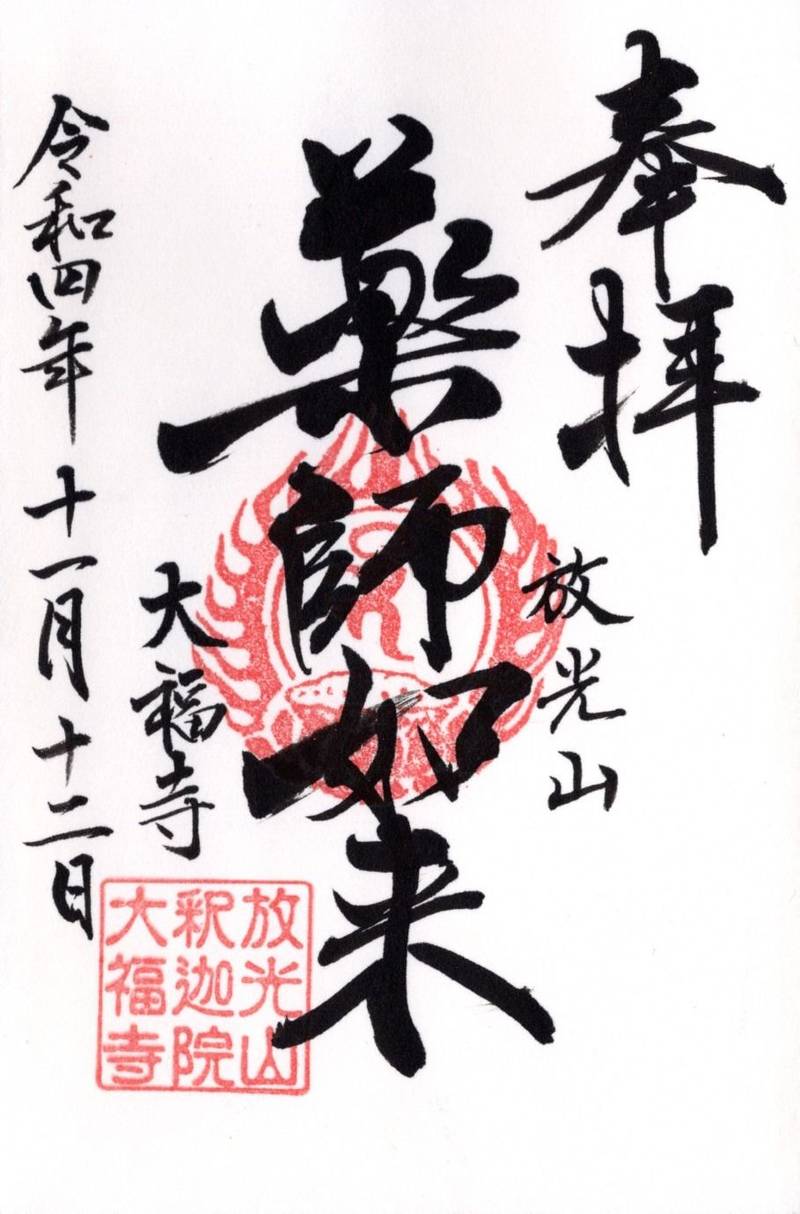 奉拝
放光山
薬師如来
大福寺
令和四年十一月十二日
放光山
釈迦院
大福寺